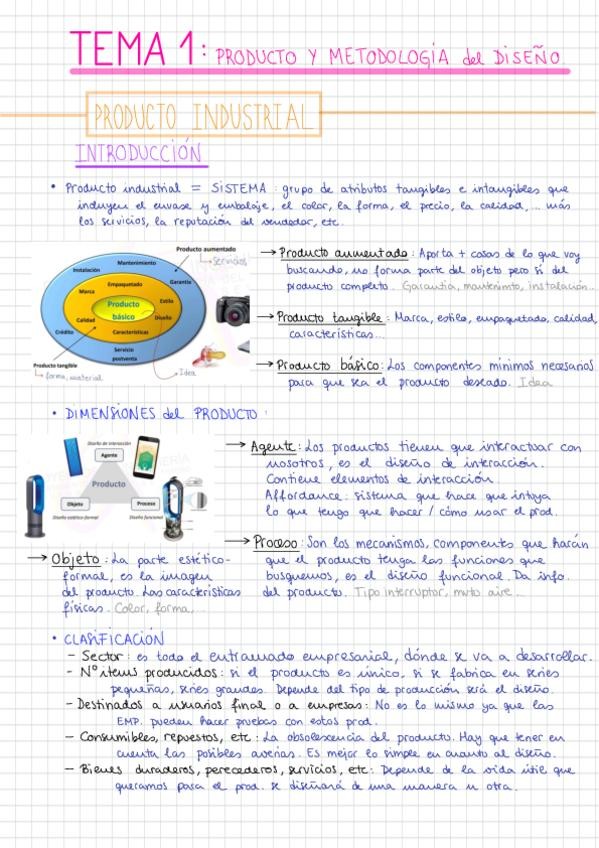 TEMA 1: PRODUCTO Y METODOLOGÍA del DISEÑO
PRODUCTO INDUSTRIAL
INTRODUCCIÓN
• Producto industrial = SISTEMA : grupo de atributos tangibles e intangibles que
incluyen el envase y embalaje, el color, la forma, el precio, la calidad,... más
los servicios, la reputación del vendedor, etc.
Producto aumentado
Servicios
Mantenimiento
Instalación
Garantía
Empaquetado
Marca
Estilo
Producto
básico
Diseño
Calidad
Características
Crédito
Servicio
postventa
Producto tangible
forma, material
Idea
→ Producto aumentado : Aporta + cosas de lo que voy
buscando, no forma parte del objeto pero sí del
producto completo. Garantía, mantenimnto, instalación...
→ Producto tangible : Marca, estilo, empaquetado, calidad,
características...
→ Producto básico : Los componentes mínimos necesarios
para que sea el producto deseado. Idea
• DIMENSIONES del PRODUCTO :
Diseño de interacción
Agente
Producto
Objeto
Proceso
Diseño estético-formal
Diseño funcional
→ Agente : Los productos tienen que interactuar con
nosotros, es el diseño de interacción.
Contiene elementos de interacción.
Affordance : sistema que hace que intuya
lo que tengo que hacer / cómo usar el prod.
→ Proceso : Son los mecanismos, componentes que harán
que el producto tenga las funciones que
busquemos, es el diseño funcional. Da info.
del producto. Tipo interruptor, mvto aire...
→ Objeto : La parte estético-
formal, es la imagen
del producto. Las características
físicas. Color, forma,...
• CLASIFICACIÓN
– Sector : es todo el entramado empresarial, dónde se va a desarrollar.
– Nº items producidos : si el producto es único, si se fabrica en series
pequeñas, series grandes. Depende del tipo de producción será el diseño.
– Destinados a usuarios final o a empresas : No es lo mismo ya que las
EMP. pueden hacer pruebas con estos prod.
– Consumibles, repuestos, etc : La obsolescencia del producto. Hay que tener en
cuenta las posibles averías. Es mejor lo simple en cuanto al diseño.
– Bienes duraderos, perecederos, servicios, etc : Depende de la vida útil que
queramos para el prod. se diseñará de una manera u otra.